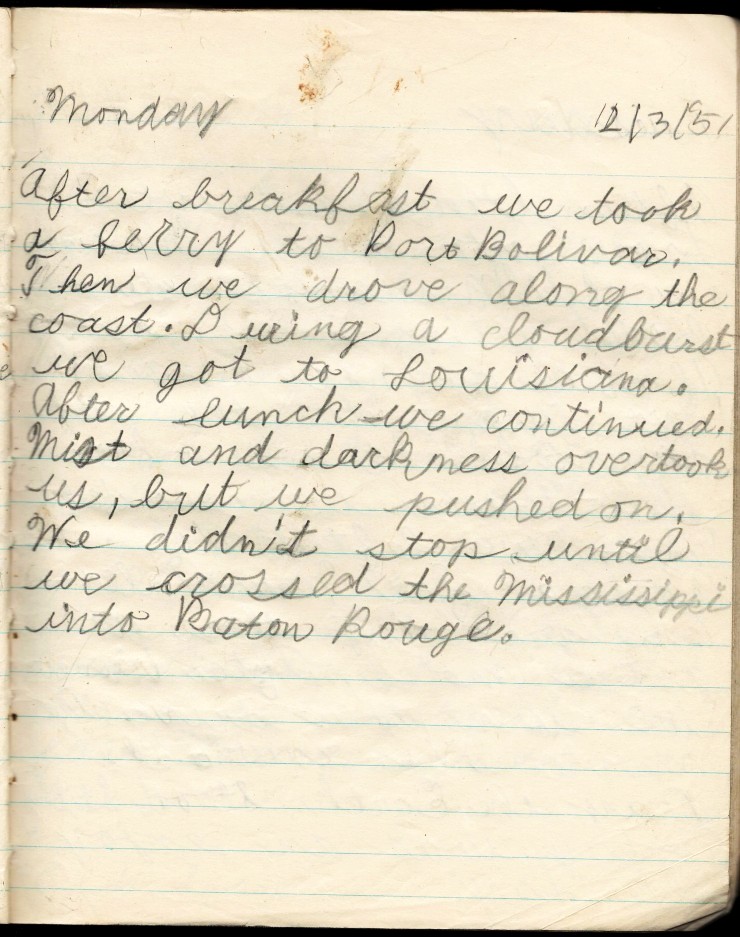 Monday 12/3/51
After breakfast we took
a ferry to Port Bolivar.
Then we drove along the
coast. During a cloudburst
we got to Louisiana.
After lunch we continued.
Mist and darkness overtook
us, but we pushed on.
We didn't stop until
we crossed the Mississippi
into Baton Rouge.